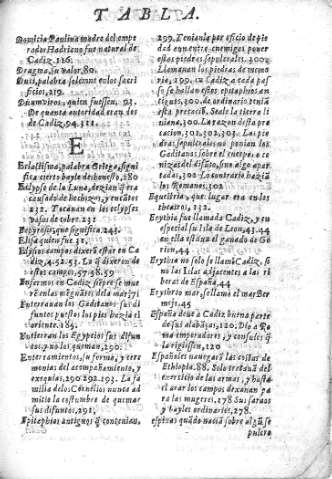 TABLA.
Domicia Paulina madre del empe
rador Hadriano fue natural de
Cadiz. 126.
Dragma, su valor. 80.
Duti, palabra solemne en los sacri
ficios, 219.
Duumviros, quien fuessen. 93.
De quanta autoridad eran des
de Cadiz, 94. 112.
E
palabra Griega, signi
fica cierto bayle deshonesto, 280
Eclypse de la Luna, dezian q̃ era
causado de hechizos, y encãtos
232. Tocauan en los eclypses
vasos de cobre. 231
que significa, 243.
Elisa quiso fue 31.
Elysios campos dixerõ estar en Ca
diz, 4.52.53. Lo q̃ dixeron de
estos campos, 57.58.59
Enfermos en Cadiz siẽpre se mue
ren las mẽguãtes dela mar, 71
Enterrauan los Gaditanos sus di
funtos puestos los pies hazia el
oriente. 289.
Enterran los Egypcios sus difun
tos, y no los queman, 290.
Enterramientos, su forma, y cere
monias del acompañamiento, y
exequias, 290.292.293. La fa
milia delos Cornelios nunca ad
mitio la costumbre de quemar
sus difuntos, 291,
Epitaphios antiguos q̃ contenian,
299. Tenian le por oficio de pie
dad aun entre enemigos poner
estas piedras sepulcrales. 300.
Llamanan los piedras de memo
ria, 299, 12. 299. a cada pas
so se hallan estos epitaphios an
tiguos, 300. de ordinario tenia
esta
uiana, 300. La razon desta pre
cacion, 301. 302. 303. Las pie
dras sepulcrales no ponian los
Gaditanos sobre el cuerpo, o ce
nizas del difũto, sino algo apar
tadas, 300. Lo contrario haziã
los Romanos. 302
que lugar era en los
theatros, 232.
Erythia fue llamada Cadiz, y en
especial su Isla de Leon, 43. 44
en ella estaua el ganado de Ge
rion, 44
Erythia no solo se llamò Cadiz, si
no las Islas adjacentes a las ri
beras de España, 44
Erythreo mar, se llamo el mar Ber
mejo. 45
España deue a Cadiz buena parte
de sus alabãças, 120. Dio a Ro
ma emperadores, y consules q̃
la rigiessen, 120
Españoles nauegarõ las costas de
Ethiopia. 88. Solo tratauã del
exercicio de las armas, y hasta
el arar los campos dexauan pa
ra las mugeres, 278. Sus saraos
y bayles ordinarios, 278.
espiras quãdo nacia sobre algũ se
pulcro